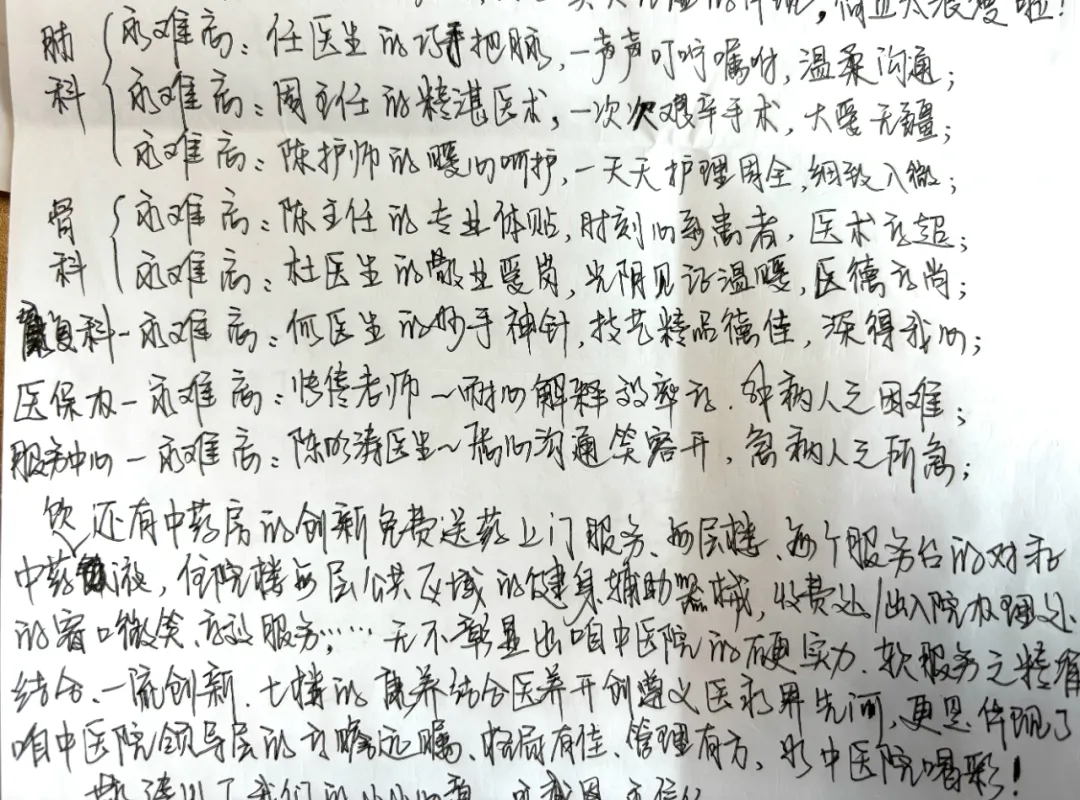 何且太浪漫啦！
肺科
永难忘：任医生的巧手把脉，一声声叮咛嘱咐，温柔沟通；
永难忘：周主任的精湛医术，一次次艰辛手术，大爱无疆；
永难忘：陈护师的暖心呵护，一天天护理周全，细致入微；
骨科
永难忘：陈主任的专业体贴，时刻心系患者，医术高超；
永难忘：杜医生的敬业爱岗，光阴见证温暖，医德高尚；
康复科－永难忘：何医生的妙手神针，技艺精品德佳，深得我心；
医保办－永难忘：老师～耐心解释效率高，解病人之困难；
服务中心－永难忘：陈 医生～ 心沟通笑容开，急病人之所急；
还有中药房的创新免费送药上门服务、每层楼、每个服务台的对和
中药饮液，住院楼每层公共区域的健身辅助器械，收费处/出入院办理处
的窗口微笑、高效服务……无不彰显出咱中医院的硬实力、软服务之精准
结合、一流创新、七楼的 养结合医养开创遵义医 界先河，更是体现了
咱中医院领导层的高瞻远瞩、格局有佳、管理有方，为中医院喝彩！
我们的小小心